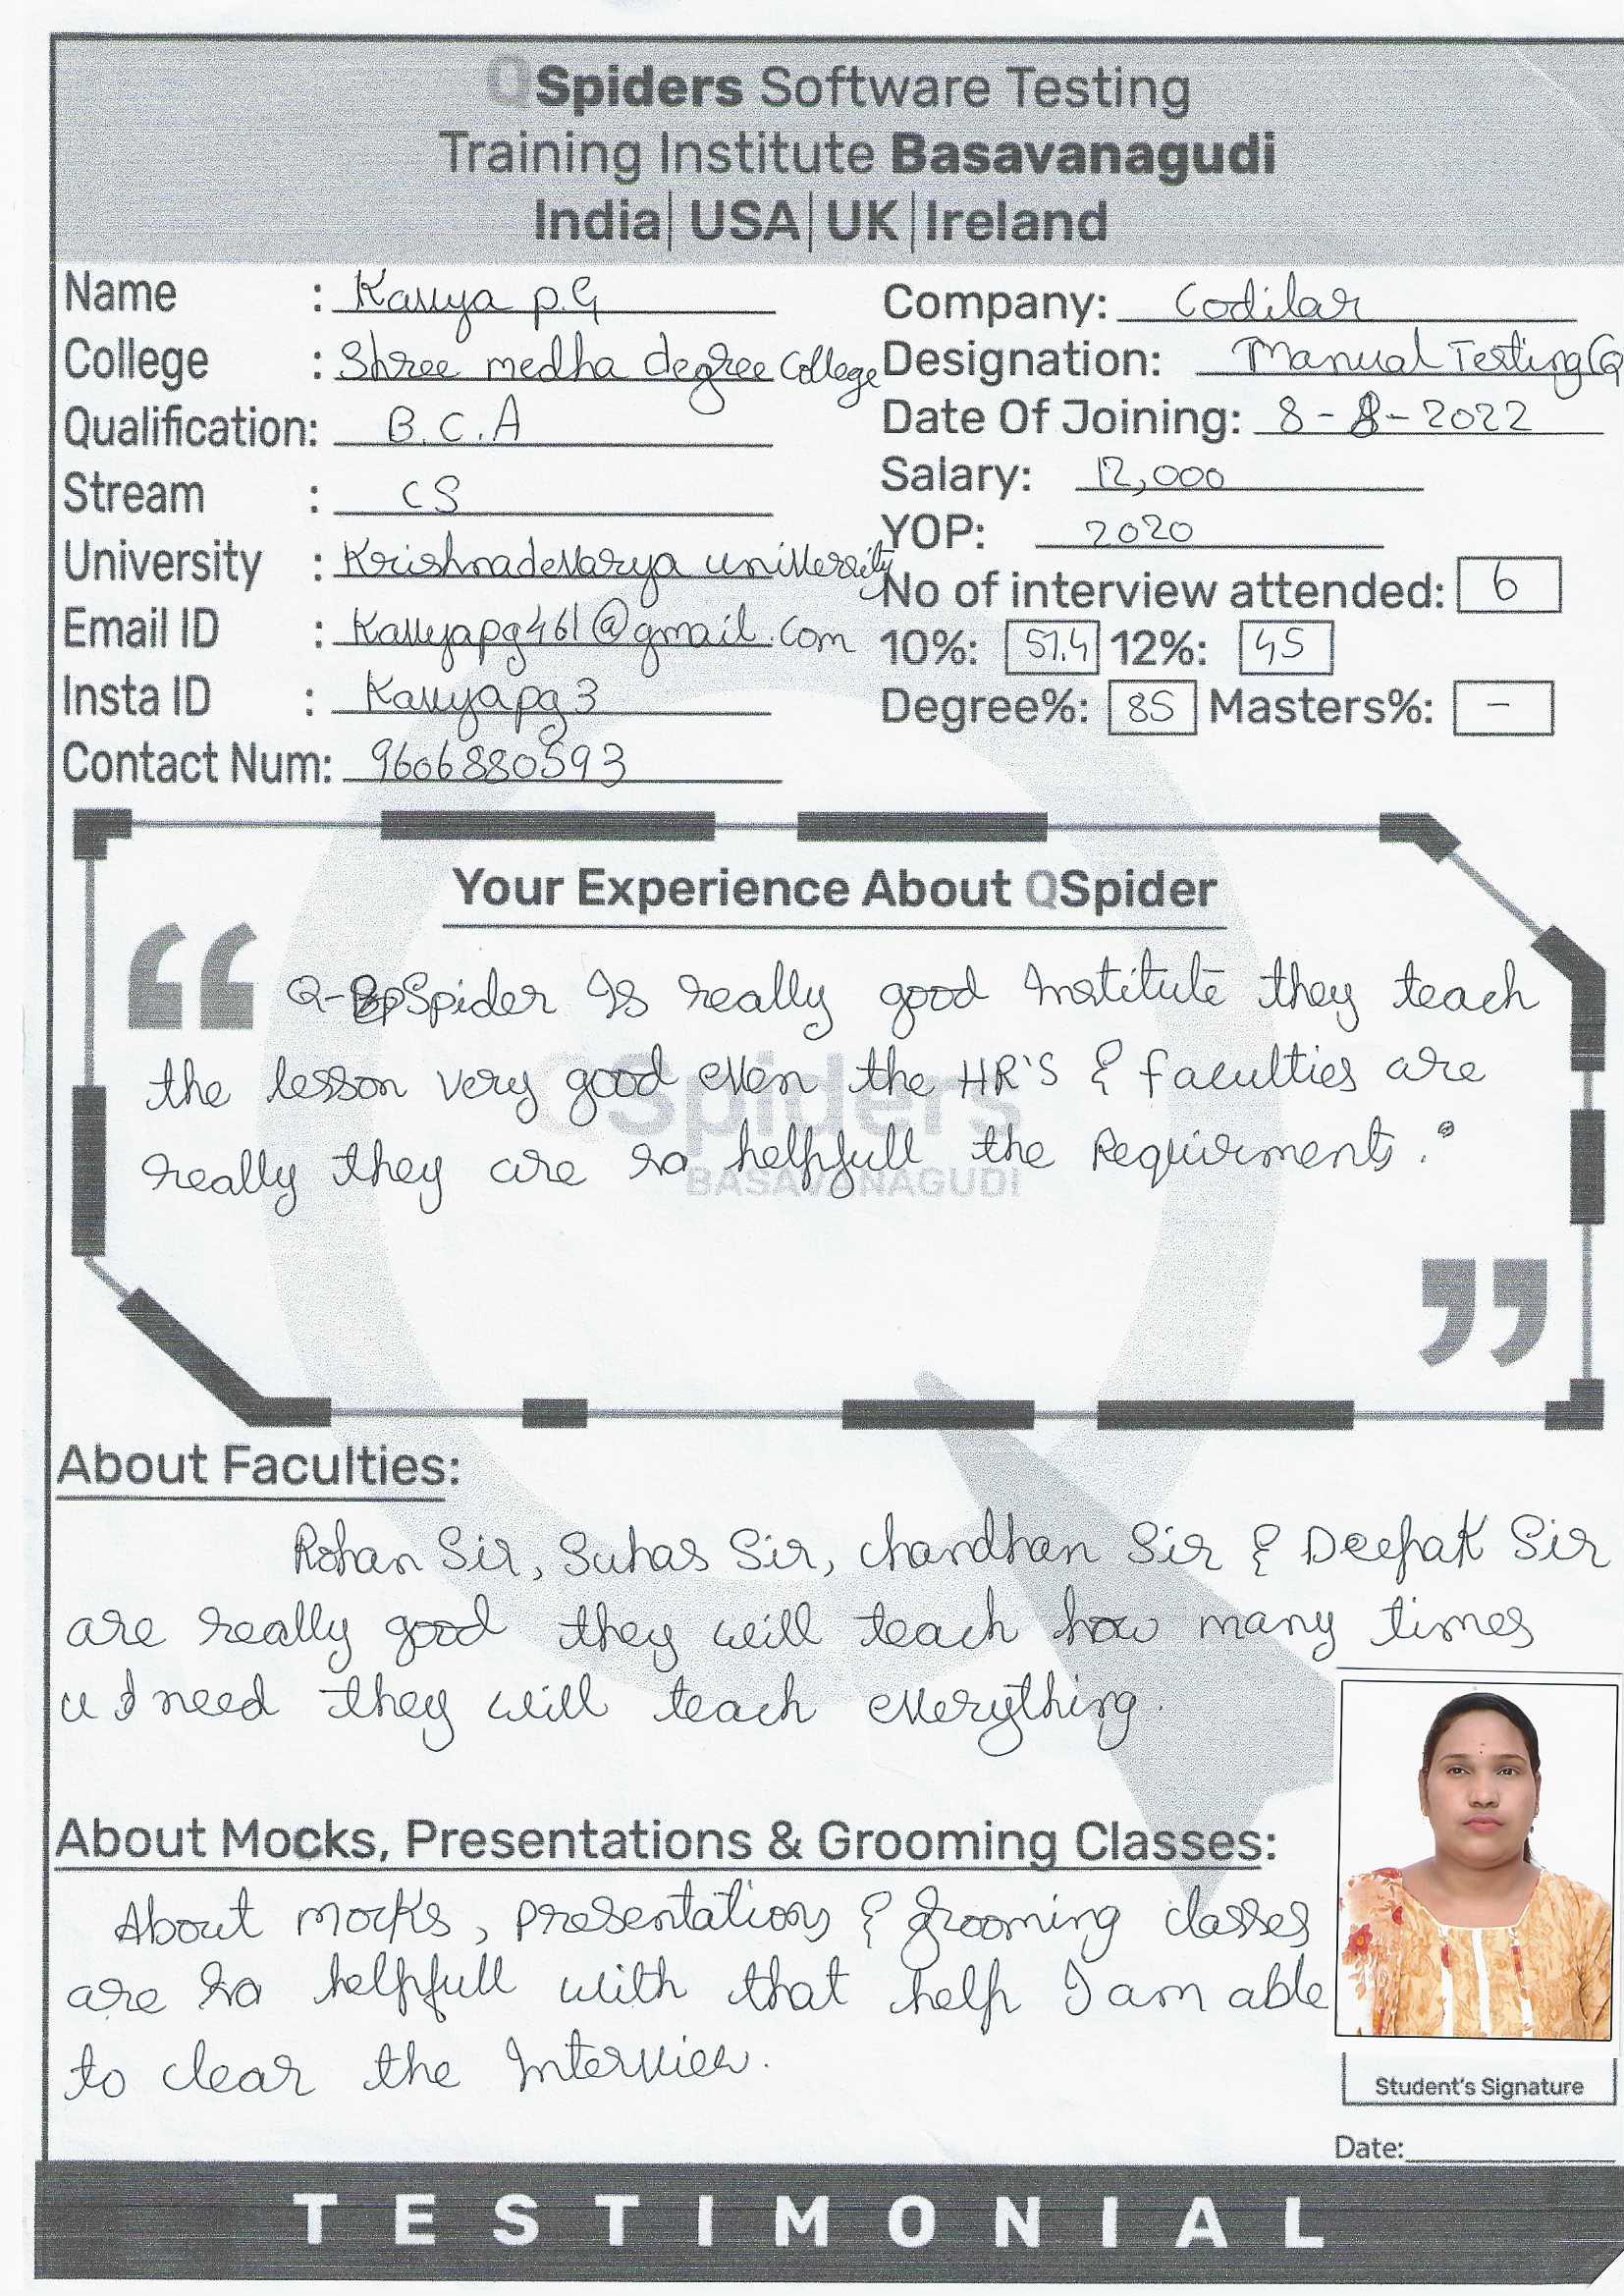 QSpiders Software Testing
Training Institute Basavanagudi
India| USA| UK| Ireland
Name : Kavya P.G
Company: Codilar
College : Shree medha degree College
Designation: Manual Testing(Q
Qualification: B.C.A
Date Of Joining: 8-8-2022
Stream : CS
Salary: 12,000
YOP: 2020
University : Krishnadevarya university
No of interview attended: 6
Email ID : Kavyapg461@gmail.com
10%: 51.4 12%: 45
Insta ID : Kavyapg3
Degree%: 85 Masters%: -
Contact Num: 9606880593
Your Experience About QSpider
“ Q-Spider Is really good Institute they teach
the lesson very good even the HR'S & faculties are
really they are so helpfull the Requirments.
”
QSpiders
BASAVANAGUDI
About Faculties:
Rohan Sir, Suhas Sir, chandhan Sir & Deepak Sir
are really good they will teach how many times
u I need they will teach everything.
About Mocks, Presentations & Grooming Classes:
About mocks, presentations & grooming classes
are so helpfull with that help I am able
to clear the Interview.
Student's Signature
Date:
TESTIMONIAL